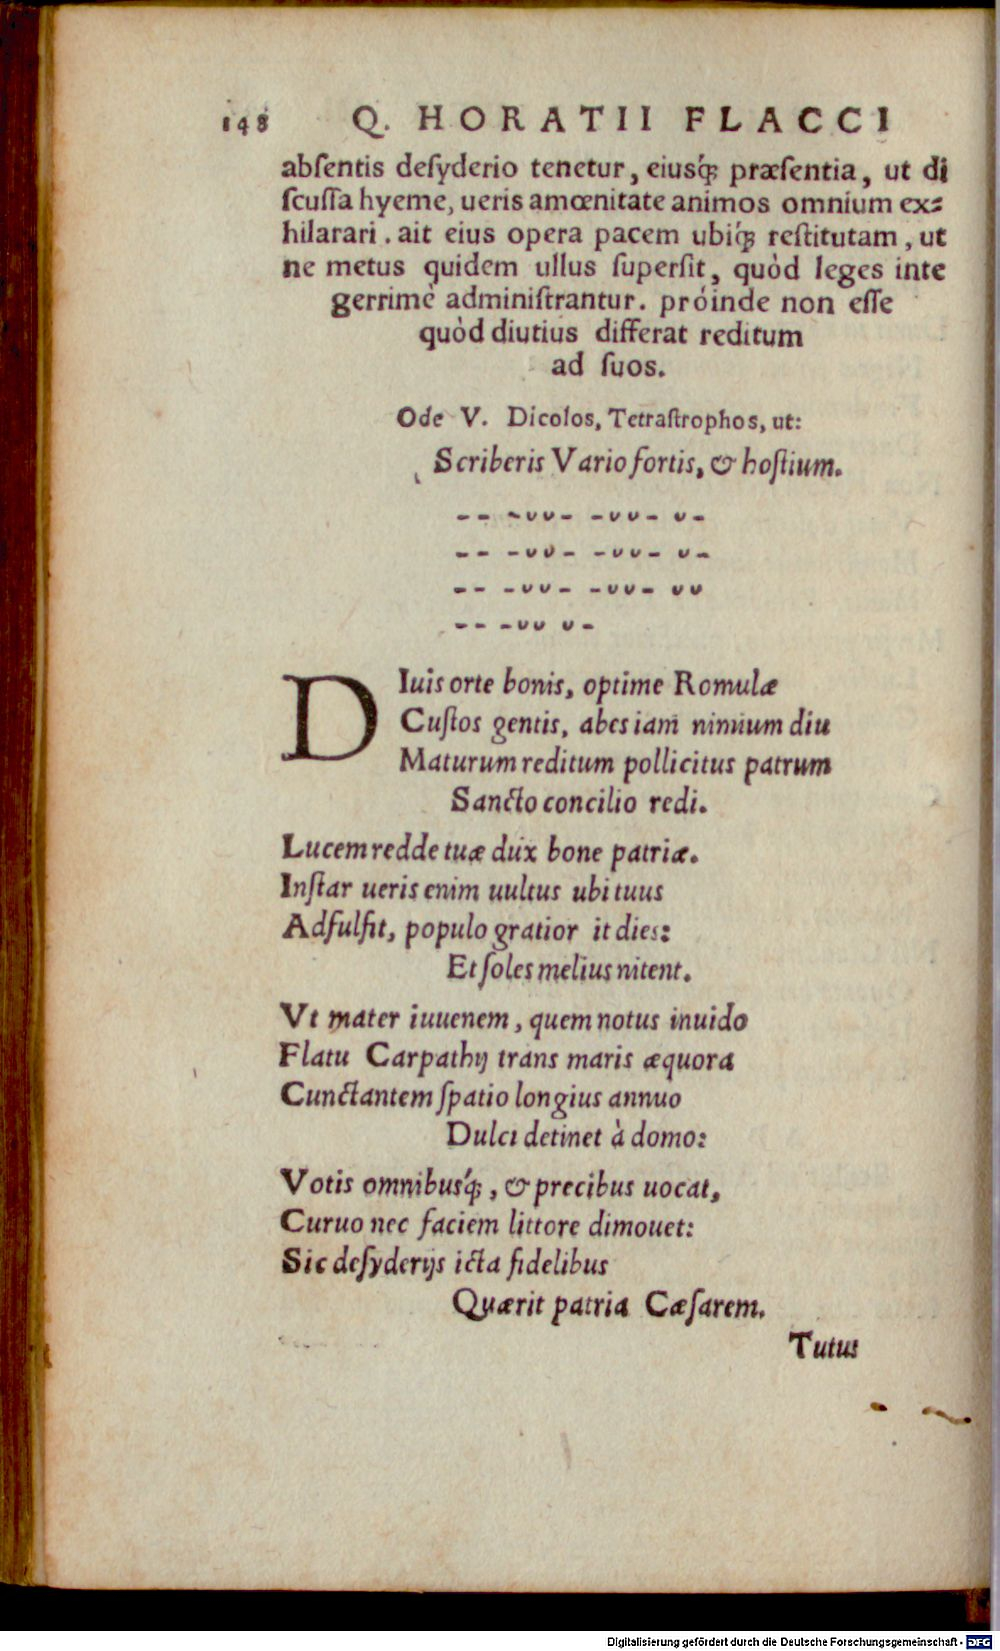 148 Q. HORATII FLACCI
abſentis deſyderio tenetur, eiusq́ꝫ præſentia, ut di
ſcuſſa hyeme, ueris amœnitate animos omnium ex⸗
hilarari. ait eius opera pacem ubiq́ꝫ reſtitutam, ut
ne metus quidem ullus ſuperſit, quòd leges inte
gerrimè adminiſtrantur. próinde non eſſe
quòd diutius differat reditum
ad ſuos.
Ode V. Dicolos, Tetraſtrophos, ut:
Scriberis Vario fortis, & hoſtium.
-- -υυ- -υυ- υ-
-- -υυ- -υυ- υ-
-- -υυ- -υυ- υυ
-- -υυ υ-
DIuis orte bonis, optime Romulæ
Cuſtos gentis, abes iam nimium diu
Maturum reditum pollicitus patrum
Sancto concilio redi.
Lucem redde tuæ dux bone patriæ.
Inſtar ueris enim uultus ubi tuus
Adfulſit, populo gratior it dies:
Et ſoles melius nitent.
Vt mater iuuenem, quem notus inuido
Flatu Carpathij trans maris æquora
Cunctantem ſpatio longius annuo
Dulci detinet à domo:
Votis omnibusq́ꝫ, & precibus uocat,
Curuo nec faciem littore dimouet:
Sic deſyderijs icta fidelibus
Quærit patria Cæſarem.
Tutus
Digitalisierung gefördert durch die Deutsche Forschungsgemeinschaft - DFG